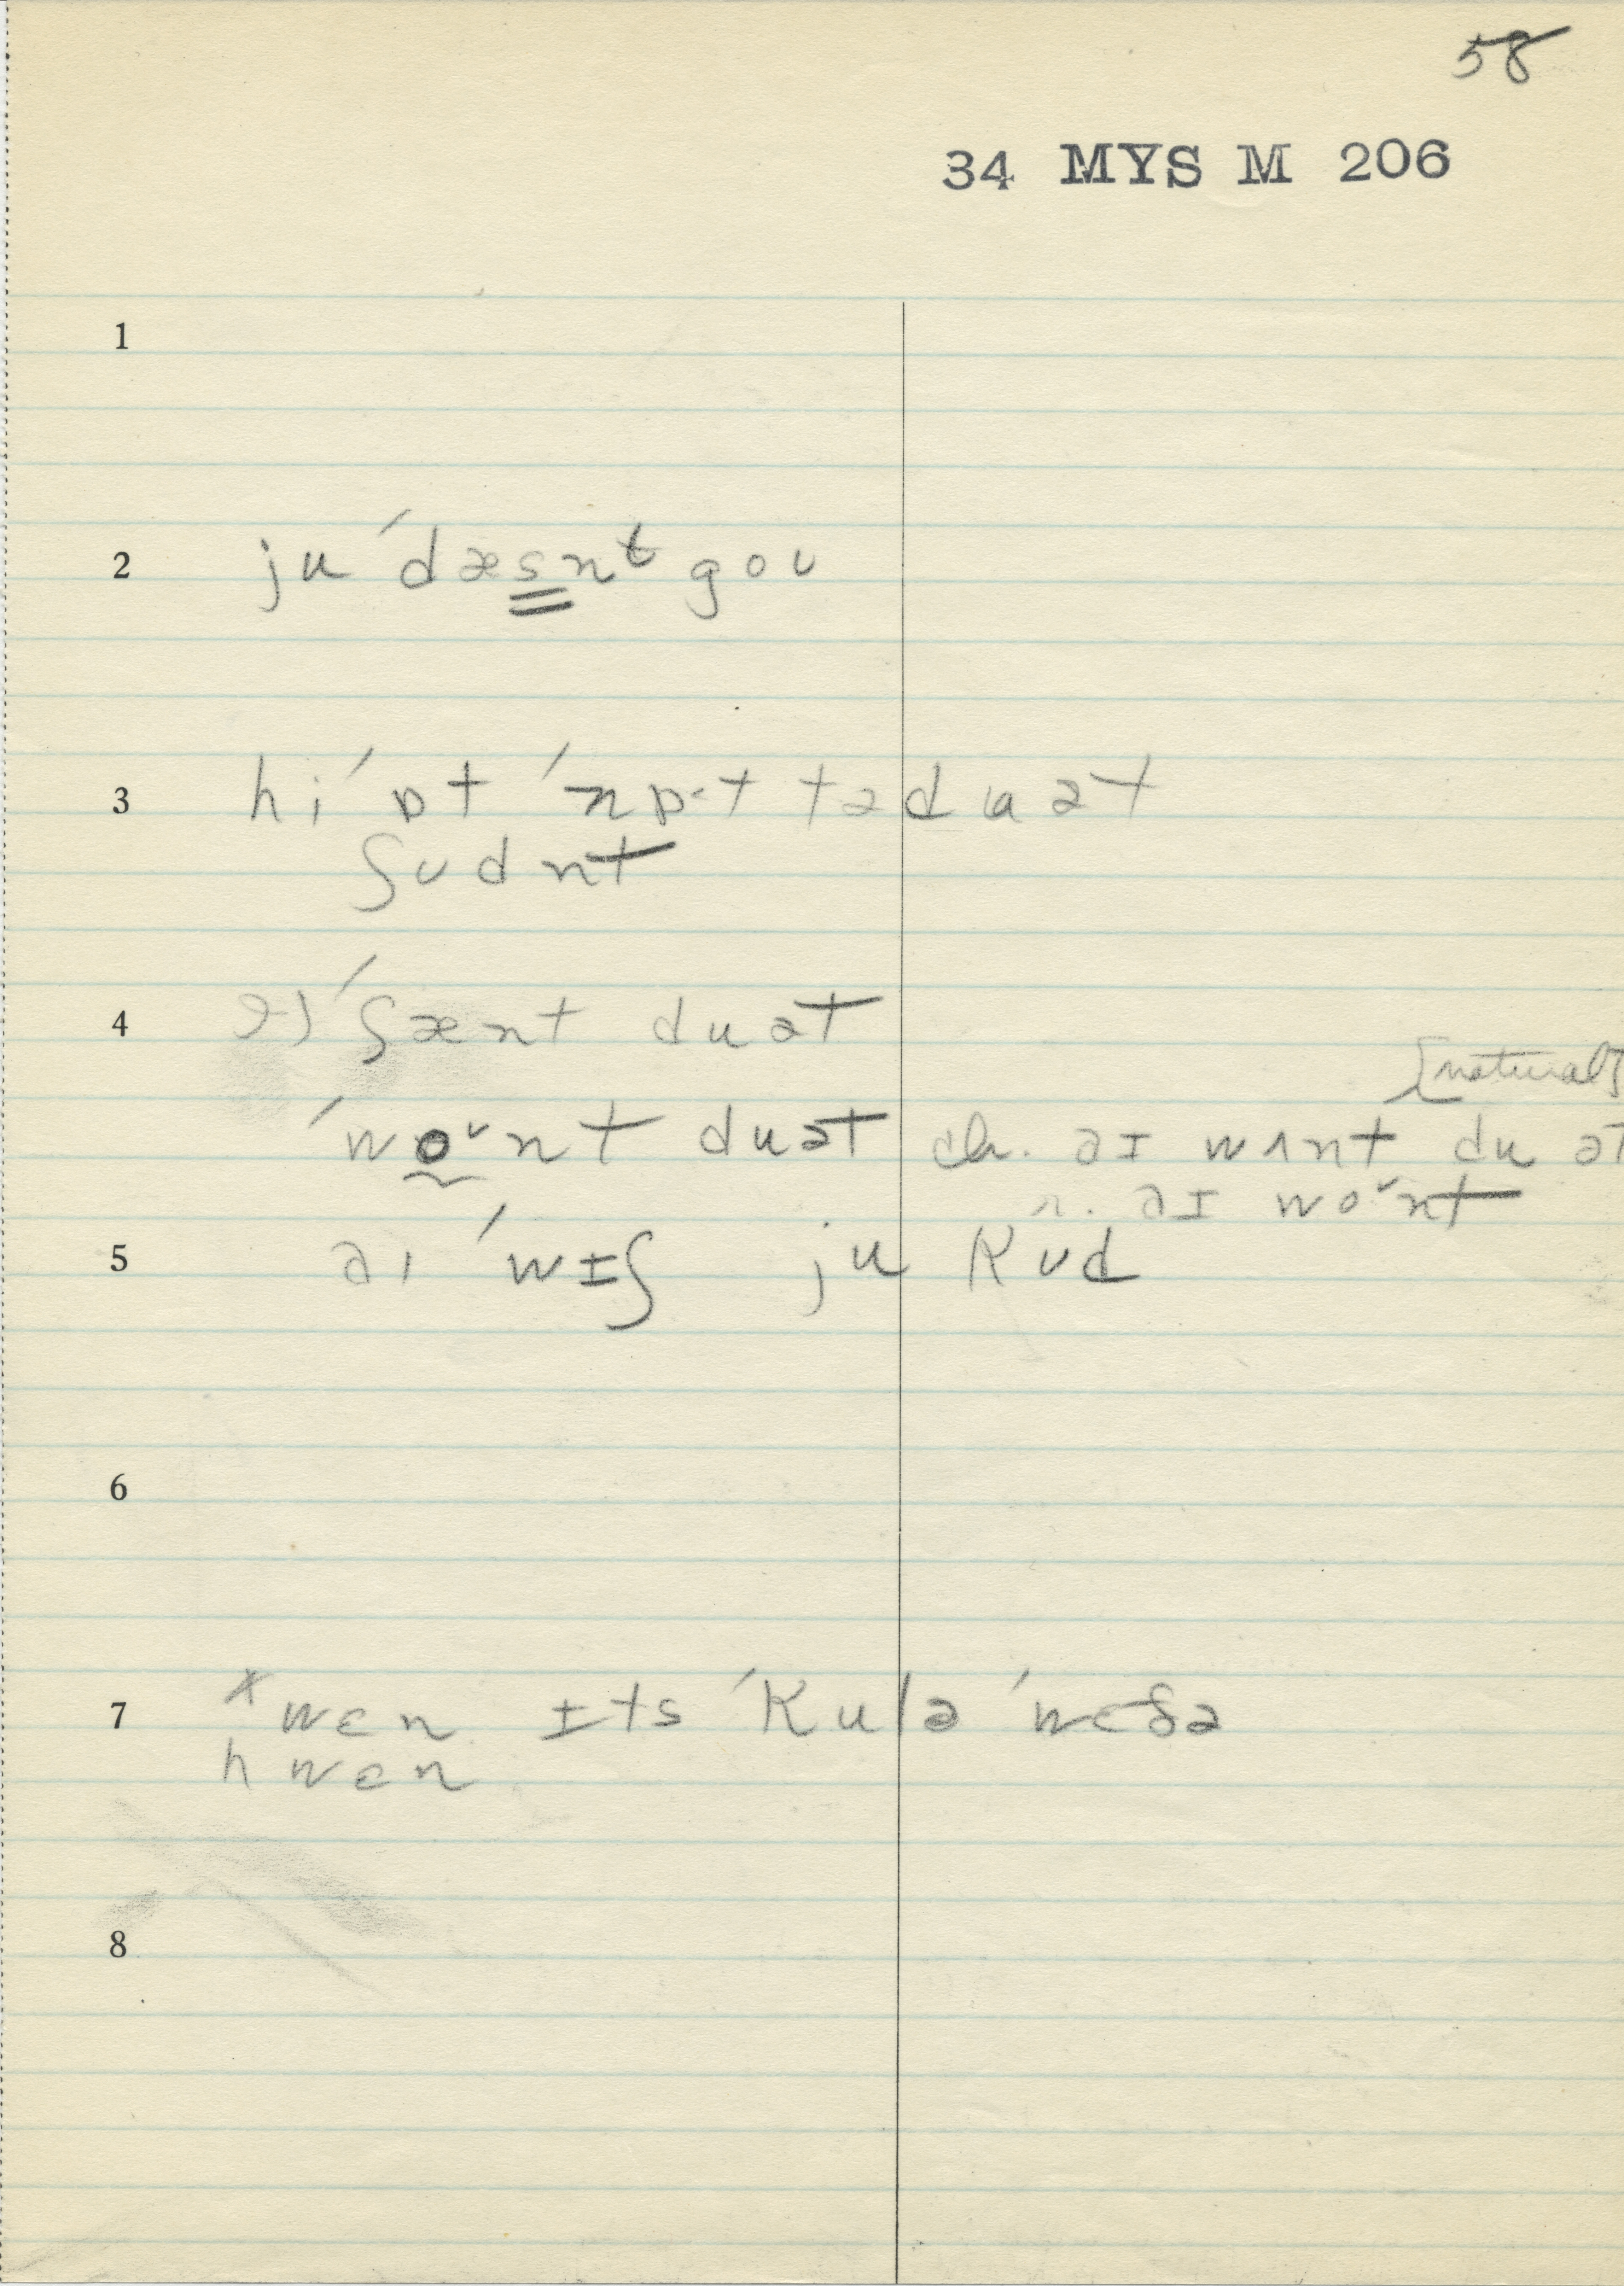 58
34 MYS M 206
1
2 ju ˈdæsnt goʊ
3 hi ˈɒt ˈnɒ·t tə du ət
ʃʊdnt
4 ˈʃænt du ət
[natural]
ˈwoᶷnt du ət ch. əɪ wʌnt du ət
r. əɪ woᶷnt
5 əɪ ˈwɪʃ ju kʊd
6
7 ˣ wɛn ɪts ˈkulə ˈwɛðə
hwɛn
8